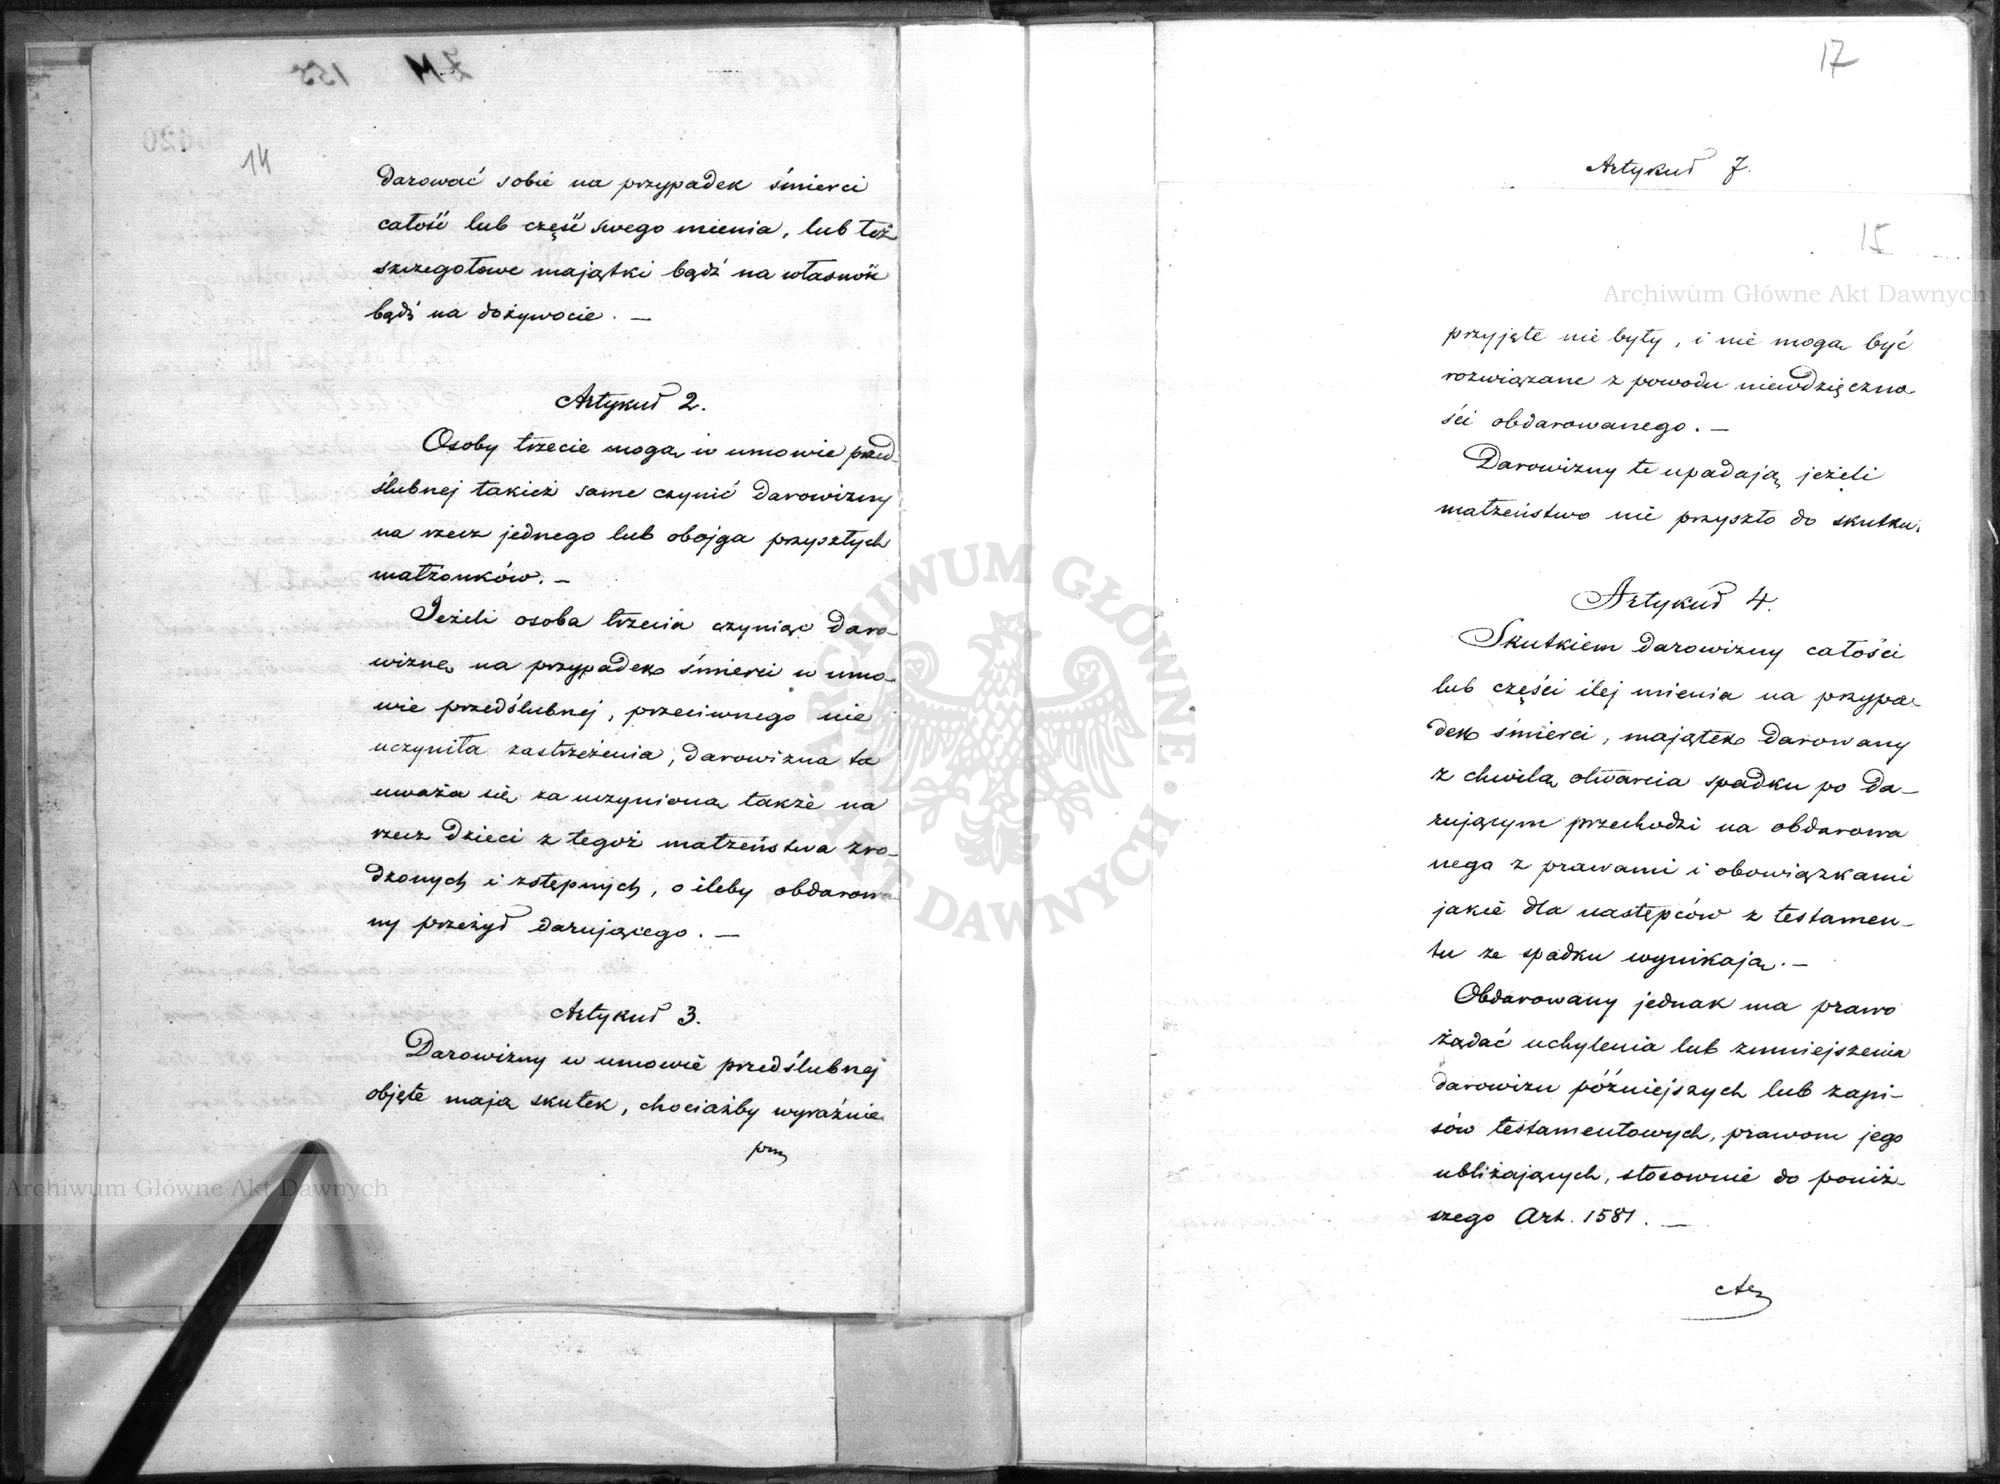 14
darować sobie na przypadek śmierci
całość lub część swego mienia, lub też
szczegółowe majątki bądź na własność
bądź na dożywocie. —
Artykuł 2.
Osoby trzecie mogą w umowie przed-
ślubnej takież same czynić darowizny
na rzecz jednego lub obojga przyszłych
małżonków. —
Jeżeli osoba trzecia czyniąc daro-
wiznę na przypadek śmierci w umo-
wie przedślubnej, przeciwnego nie
uczyniła zastrzeżenia, darowizna ta
uważa się za uczynioną także na
rzecz dzieci z tegoż małżeństwa zro-
dzonych i zstępnych, o ileby obdarowa
ny przeżył darującego. —
Artykuł 3.
Darowizny w umowie przedślubnej
objęte mają skutek, chociażby wyraźnie
prz
17
Artykuł 7.
15
przyjęte nie były, i nie mogą być
rozwiązane z powodu niewdzięczno
ści obdarowanego. —
Darowizny te upadają jeżeli
małżeństwo nie przyszło do skutku.
Artykuł 4.
Skutkiem darowizny całości
lub części jej mienia na przypa-
dek śmierci, majątek darowany
z chwilą otwarcia spadku po da-
rującym przechodzi na obdarowa
nego z prawami i obowiązkami
jakie dla następców z testamen-
tu ze spadku wynikają. —
Obdarowany jednak ma prawo
żądać uchylenia lub zmniejszenia
darowizn późniejszych lub zapi-
sów testamentowych, prawom jego
ubliżających, stosownie do poniż-
szego Art. 1581. —
Archiwum Główne Akt Dawnych
Archiwum Główne Akt Dawnych
ARCHIWUM GŁÓWNE · AKT DAWNYCH ·